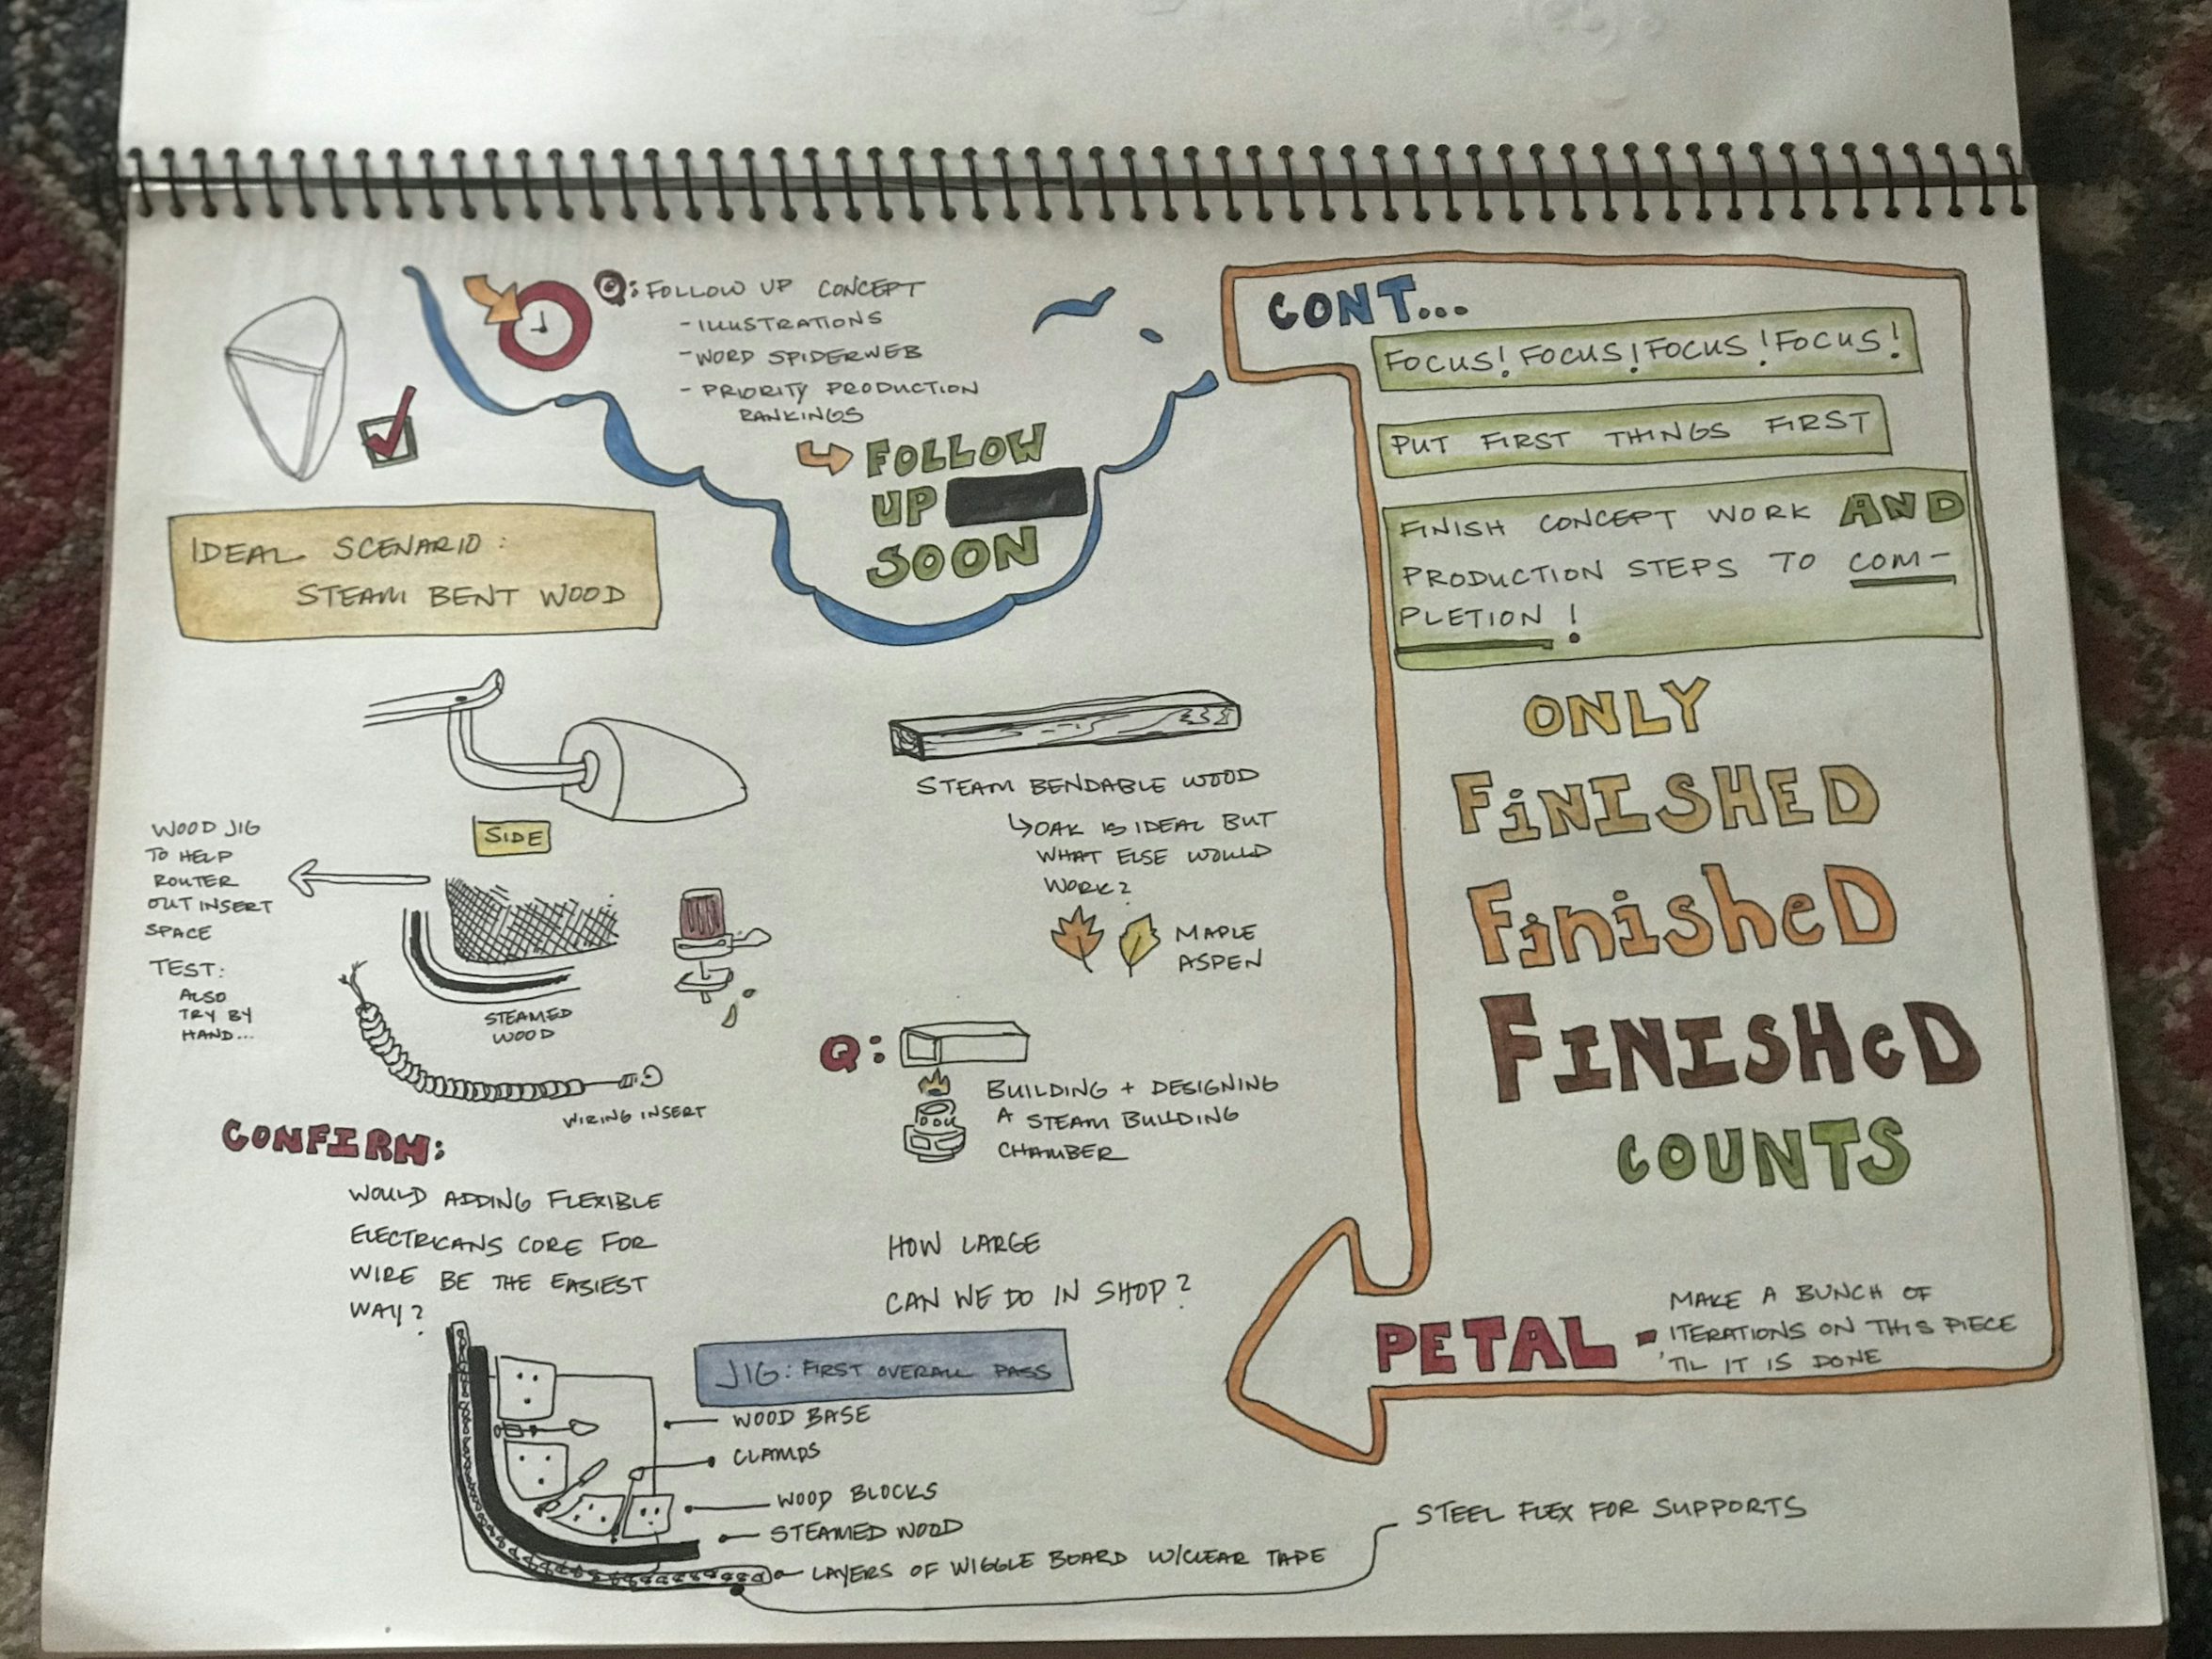 Q: FOLLOW UP CONCEPT
- ILLUSTRATIONS
- WORD SPIDERWEB
- PRIORITY PRODUCTION
RANKINGS
FOLLOW
UP
SOON
IDEAL SCENARIO:
STEAM BENT WOOD
SIDE
WOOD JIG
TO HELP
ROUTER
OUT INSERT
SPACE
TEST:
ALSO
TRY BY
HAND...
STEAMED
WOOD
WIRING INSERT
CONFIRM:
WOULD ADDING FLEXIBLE
ELECTRICANS CORE FOR
WIRE BE THE EASIEST
WAY?
STEAM BENDABLE WOOD
OAK IS IDEAL BUT
WHAT ELSE WOULD
WORK?
MAPLE
ASPEN
Q:
BUILDING + DESIGNING
A STEAM BUILDING
CHAMBER
HOW LARGE
CAN WE DO IN SHOP?
JIG: FIRST OVERALL PASS
WOOD BASE
CLAMPS
WOOD BLOCKS
STEAMED WOOD
LAYERS OF WIGGLE BOARD W/CLEAR TAPE
STEEL FLEX FOR SUPPORTS
CONT...
FOCUS! FOCUS! FOCUS! FOCUS!
PUT FIRST THINGS FIRST
FINISH CONCEPT WORK AND
PRODUCTION STEPS TO COM-
PLETION!
ONLY
FiNISHED
FinisheD
FINISHeD
COUNTS
PETAL - MAKE A BUNCH OF
ITERATIONS ON THIS PIECE
'TIL IT IS DONE